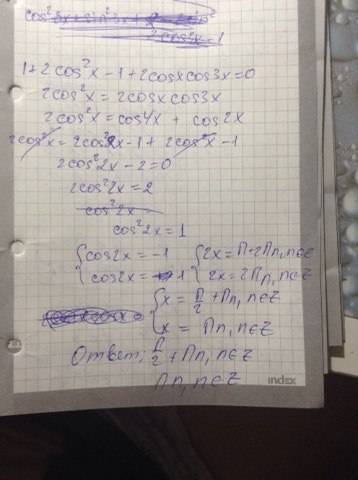 1+2cos²x-1+2cosxcos3x=0
2cos²x=2cosxcos3x
2cos²x=cos4x + cos2x
2cos²x=2cos²2x-1+2cos²x-1
2cos²2x-2=0
2cos²2x=2
cos²2x
cos²2x=1
{cos2x=-1 {2x=П+2Пn, n∈Z
cos2x=1 2x=2Пn, n∈Z
{x=П/2+Пn, n∈Z
x= Пn, n∈Z
Ответ: П/2+Пn, n∈Z
Пn, n∈Z
index